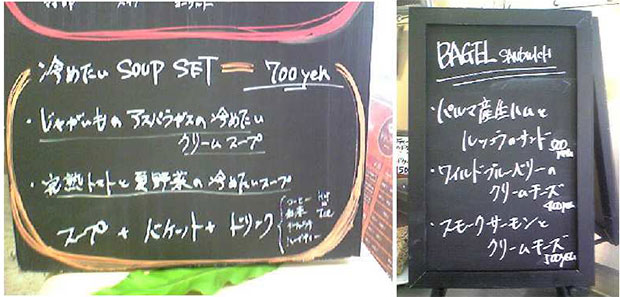 冷めたい SOUP SET = 700yen
・じゃがいもの アスパラガスの冷めたい
クリームスープ
・完熟トマトと夏野菜の冷めたいスープ
スープ + バケット + ドリンク
コーヒー
紅茶
Hot
or
Ice
BAGEL SANDWICH
・パルマ産生ハムと
ルッコラのサンド 500
yen
・ワイルドブルーベリーの
クリームチーズ
400yen
・スモークサーモンと
クリームチーズ
500yen